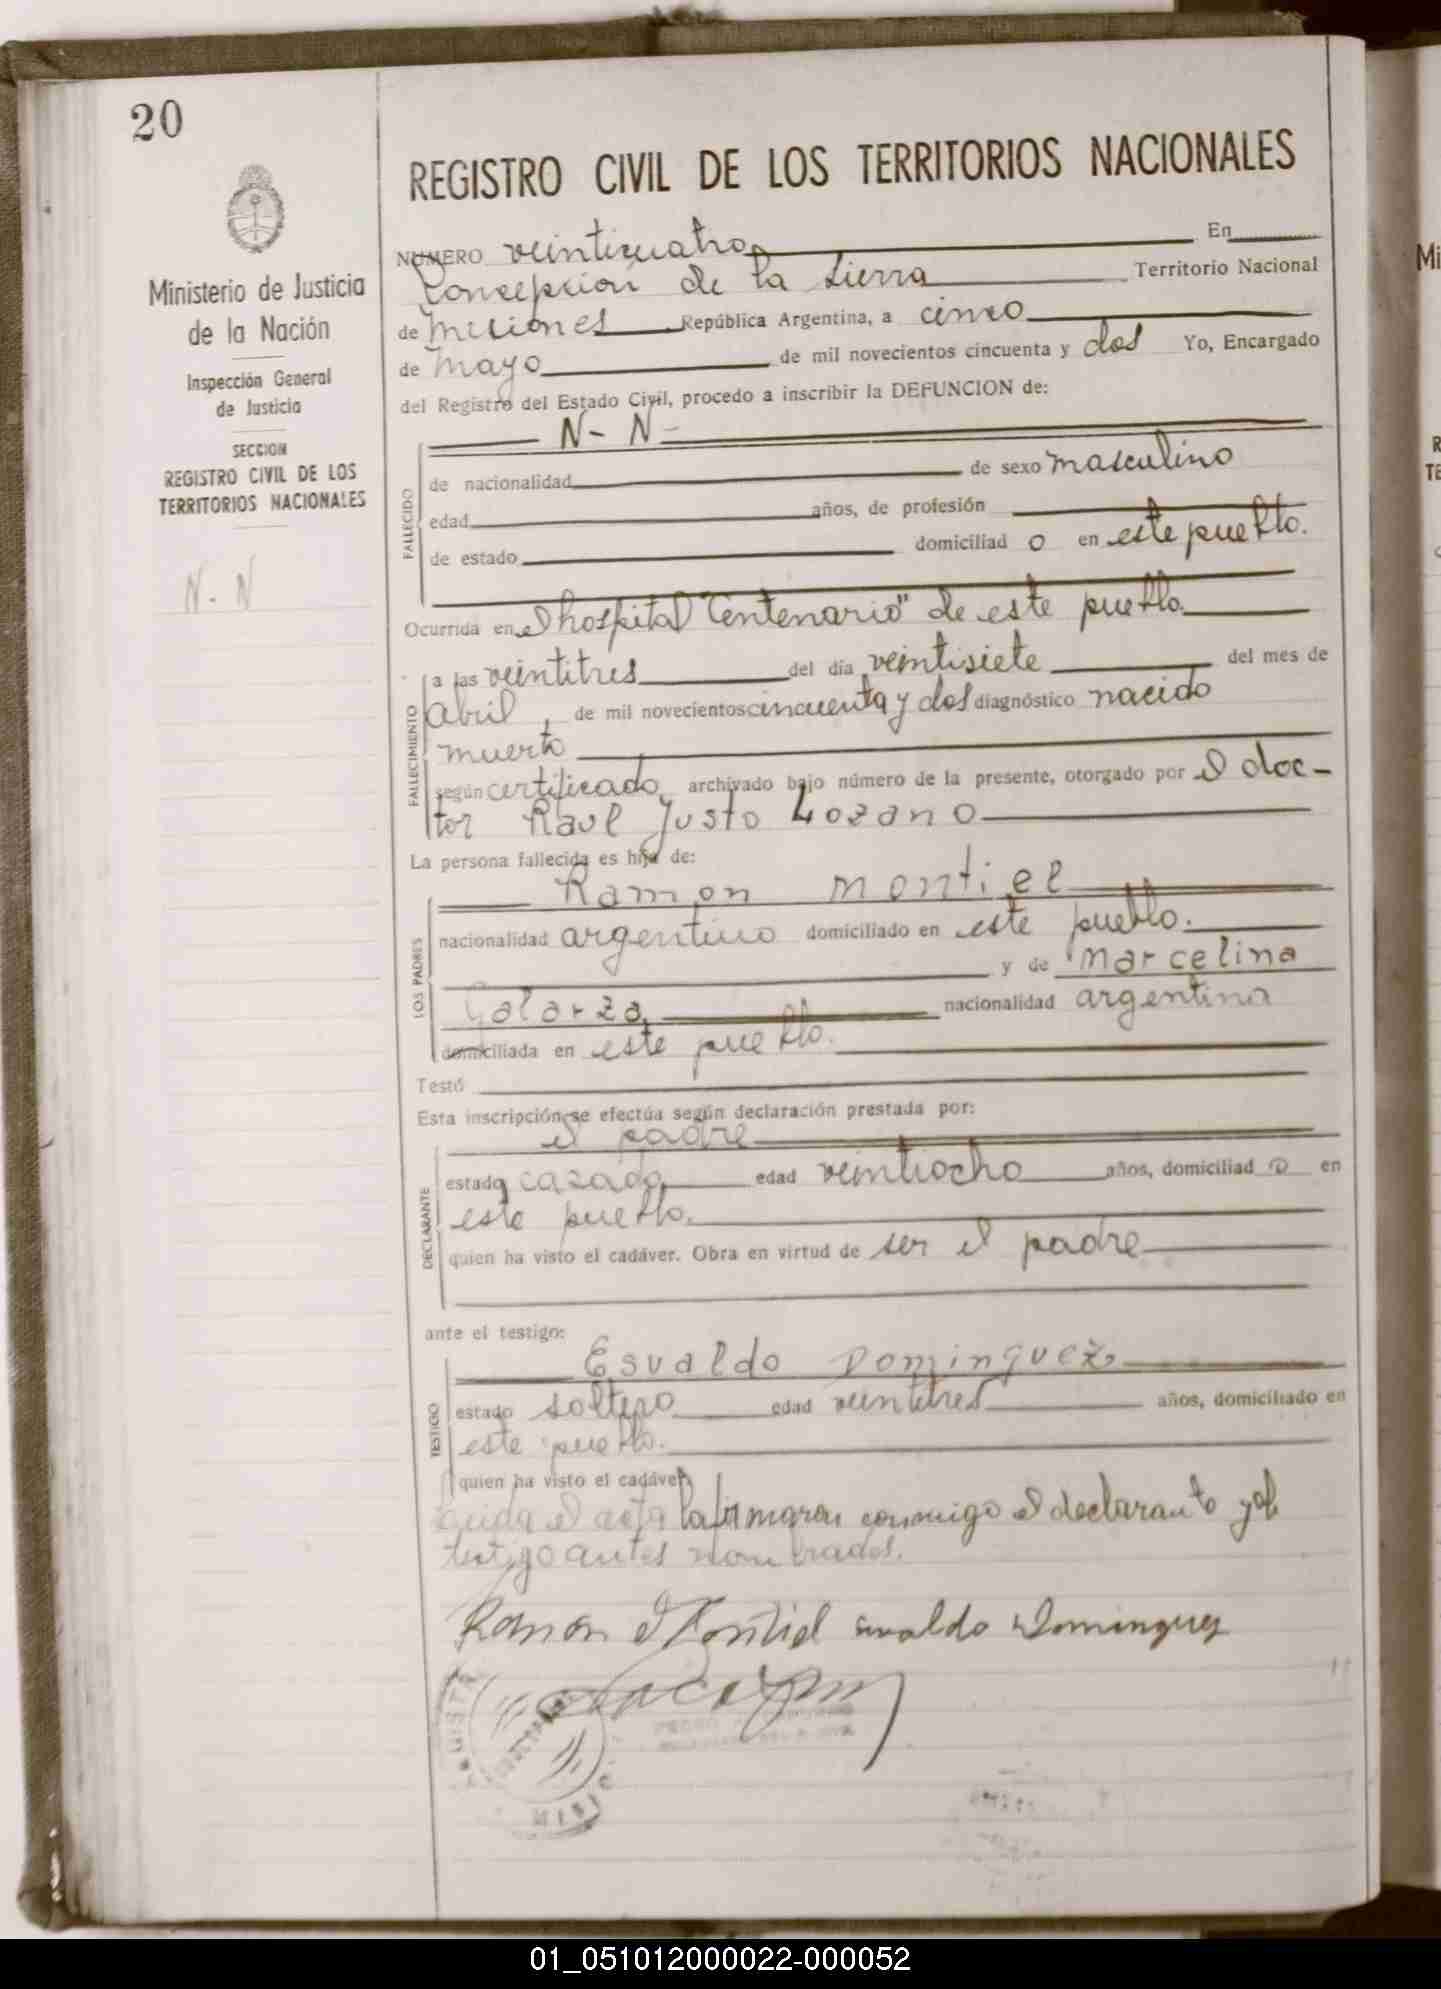 20
REGISTRO CIVIL DE LOS TERRITORIOS NACIONALES
Ministerio de Justicia
de la Nación
Inspección General
de Justicia
SECCION
REGISTRO CIVIL DE LOS
TERRITORIOS NACIONALES
N. N
NUMERO veinticuatro En
Concepción de la Sierra Territorio Nacional
de Misiones República Argentina, a cinco
de mayo de mil novecientos cincuenta y dos Yo, Encargado
del Registro del Estado Civil, procedo a inscribir la DEFUNCION de:
N- N-
FALLECIDO
de nacionalidad de sexo masculino
edad años, de profesión
de estado domiciliad o en este pueblo.
Ocurrida en el hospital "Centenario" de este pueblo
FALLECIMIENTO
a las veintitres del día veintisiete del mes de
abril, de mil novecientos cincuenta y dos diagnóstico nacido
muerto
según certificado archivado bajo número de la presente, otorgado por el doc-
tor Raul Justo Lozano
La persona fallecida es hijo de:
LOS PADRES
Ramon Montiel
nacionalidad argentino domiciliado en este pueblo.
y de Marcelina
Galarza nacionalidad argentina
domiciliada en este pueblo.
Testó
Esta inscripción se efectúa según declaración prestada por:
DECLARANTE
el padre
estado cazado edad veintiocho años, domiciliad o en
este pueblo.
quien ha visto el cadáver. Obra en virtud de ser el padre
ante el testigo:
TESTIGO
Esvaldo Dominguez
estado soltero edad veintitres años, domiciliado en
este pueblo.
quien ha visto el cadáver
el acta la firmaron conmigo el declarante y el
testigo antes nombrados.
Ramon Montiel Dominguez
MISI
01_051012000022-000052